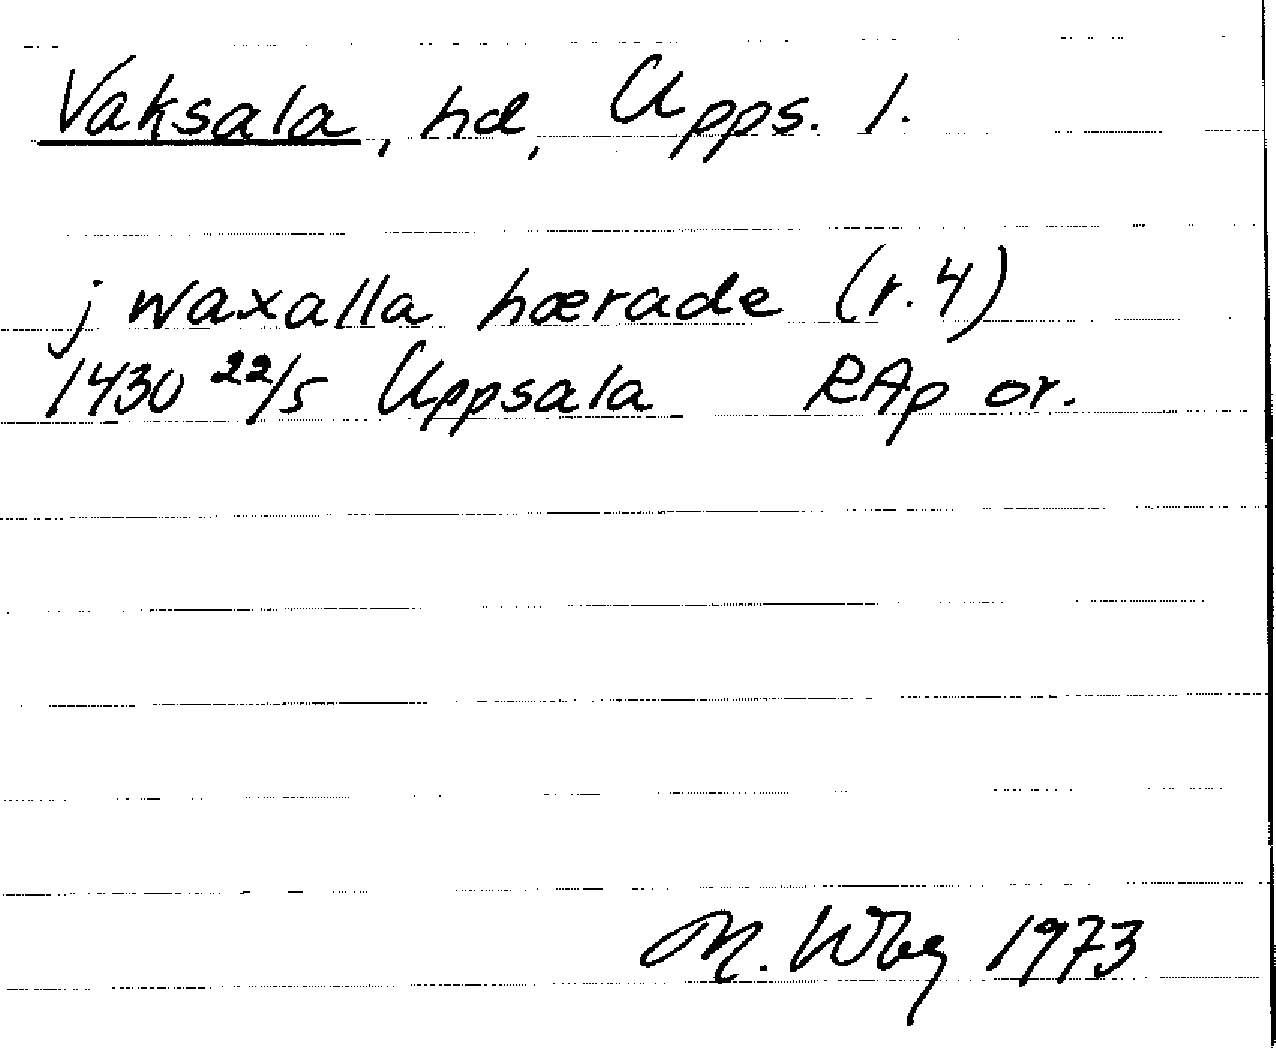 Vaksala, hd, Upps. l.
j waxalla hærade (r. 4)
1430 22/5 Uppsala RAp or.
M. Wbg 1973